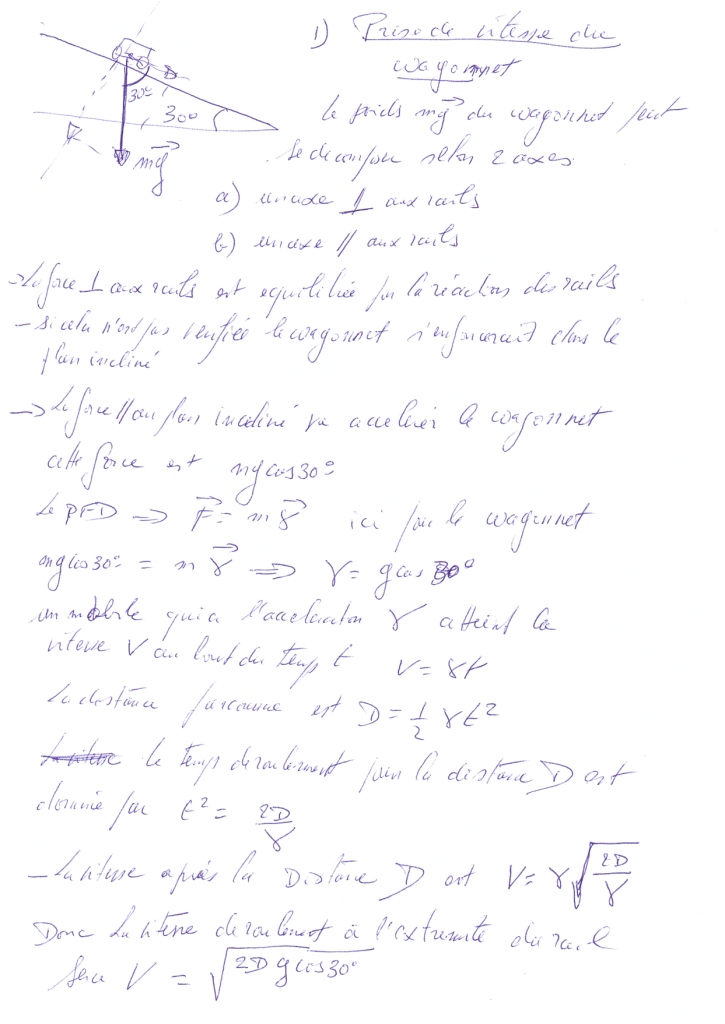 1) Prise de vitesse du
wagonnet
D
30°
30°
mg
le poids mg du wagonnet peut
se decomposer selon 2 axes
a) un axe ⊥ aux rails
b) un axe // aux rails
→ La force ⊥ aux rails est equilibrée par la réaction des rails
- si cela n'est pas verifiée le wagonnet s'enfoncerait dans le
plan incliné
→ La force // au plan incliné va accelerer le wagonnet
cette force est mg cos 30°
Le PFD ⇒ F = m γ ici pour le wagonnet
mg cos 30° = m γ ⇒ γ = g cos 30°
un mobile qui a l'acceleration γ atteint la
vitesse V au bout du temps t V = γt
La distance parcourue est D = 1/2 γt²
le temps de roulement pour la distance D est
donnée par t² = 2D/γ
- La vitesse après la Distance D est V = γ √(2D/γ)
Donc La vitesse de roulement à l'extremité du rail
sera V = √(2D g cos 30°)